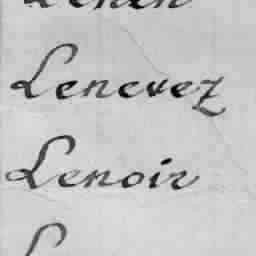 Lenevez
Lenoir